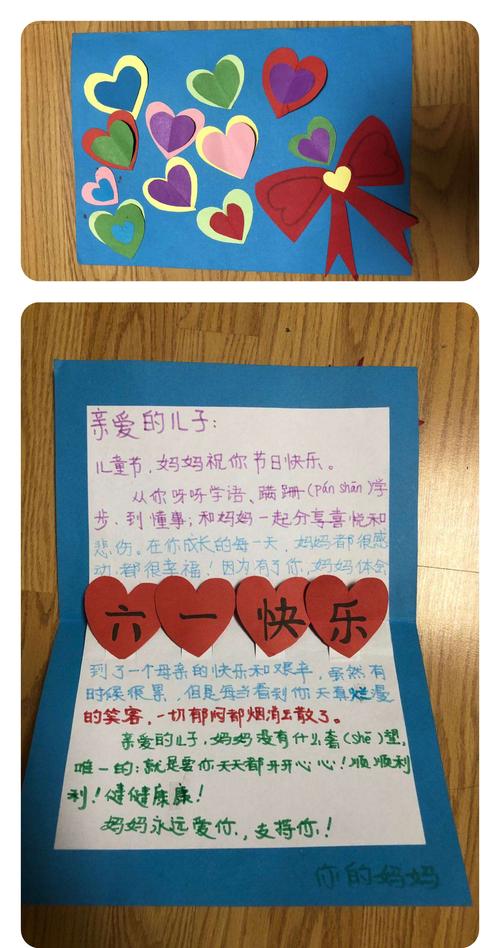 亲爱的儿子:
儿童节,妈妈祝你节日快乐。
从你呀呀学语、蹒跚(pán shān)学
步,到懂事;和妈妈一起分享喜悦和
悲伤。在你成长的每一天,妈妈都很感
动,都很幸福!因为有了你,妈妈体会
六一快乐
到了一个母亲的快乐和艰辛,虽然有
时候很累,但是每当看到你天真烂漫
的笑容,一切郁闷都烟消云散了。
亲爱的儿子,妈妈没有什么奢(shē)望,
唯一的:就是要你天天都开开心心!顺顺利
利!健健康康!
妈妈永远爱你,支持你!
你的妈妈